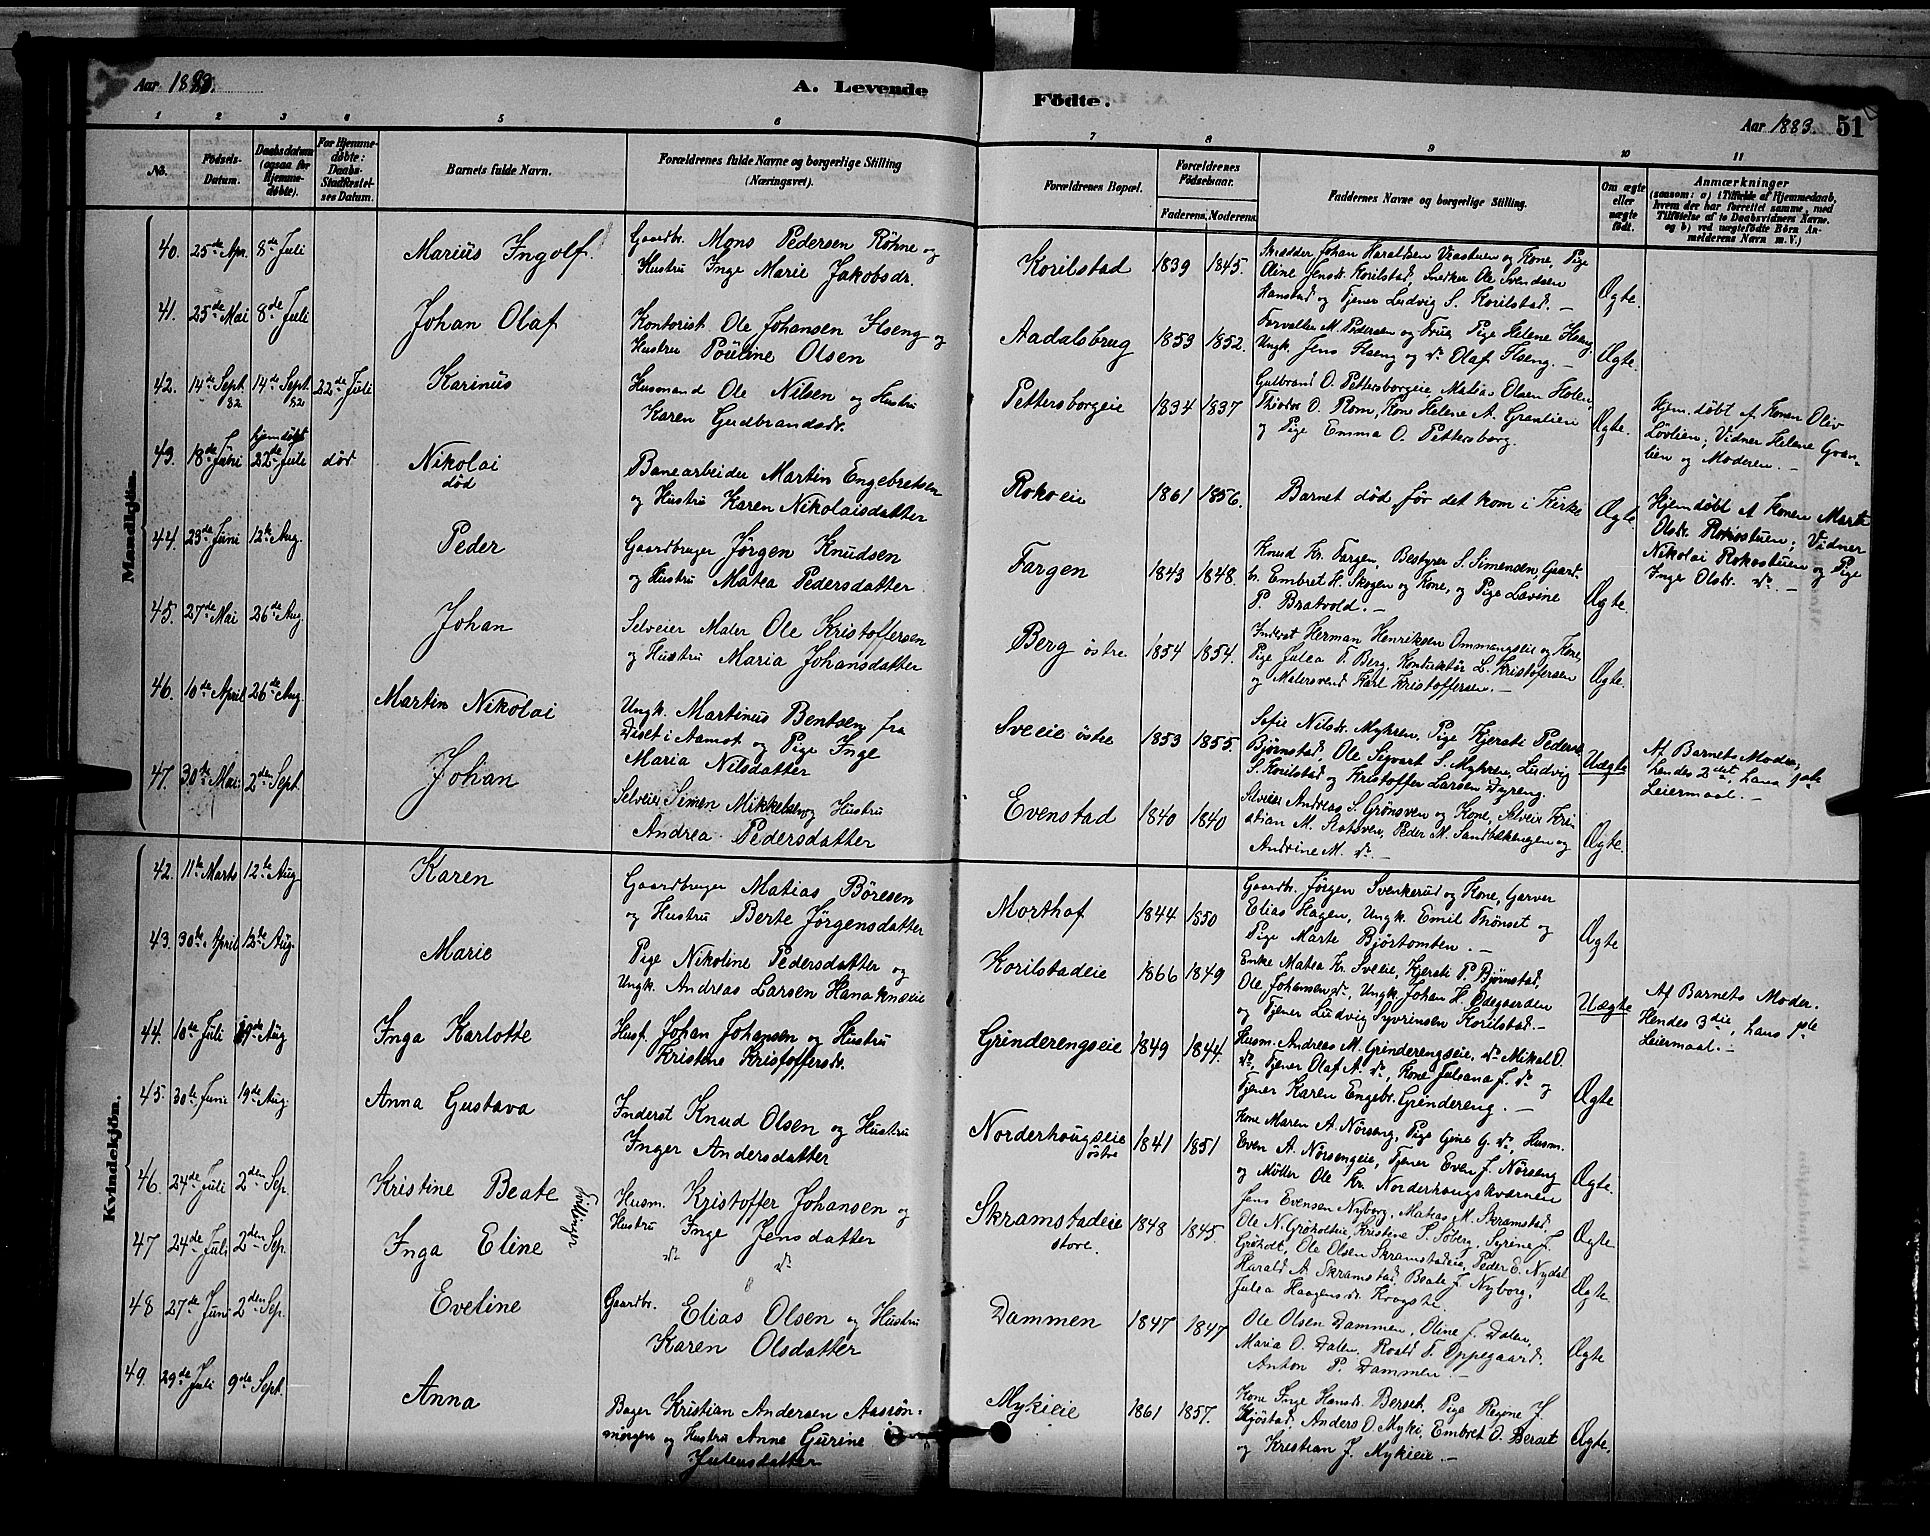 Aar 1883.
A. Levende
Födte.
Aar 1883.
51
1 2 3 4 5 6
7 8 9 10 11
No.
Födsels-Datum.
Daabsdatum (ogsaa for Hjemme-döbte).
For Hjemme-döbte: Daabs-Stadfæstel-ses Datum.
Barnets fulde Navn.
Forældrenes fulde Navne og borgerlige Stilling (Næringsvei).
Forældrenes Bopæl.
Forældrenes Födselsaar.
Faderens. Moderens.
Faddernes Navne og borgerlige Stilling.
Om ægte eller uægte födt.
Anmærkninger
(saasom: a) i Tilfælde af Hjemmedaab, hvem der har forrettet samme, med Tilföielse af to Daabsvidners Navne, og b) ved uægtefödte Börn An-melderens Navn m. V.)
Mandkjön.
40. 25de Apr. 8de Juli Marius Ingolf.
Gaardbr. Mons Pedersen Røhne og
Hustru Inge Marie Jakobsdr.
Korilstad 1839 1845.
Skrædder Johan Haraldsen og Kone, Pige
Oline Jensdr. Korilstad, Snedker Ole Svendsen
Hanstad og Tjener Ludvig S. Korilstad. —
Ægte.
41. 25de Mai 8de Juli Johan Olaf
Kontorist Ole Johansen Ilseng og
Hustru Pouline Olsen
Aadalsbrug 1853 1852.
Forvalter M. Pedersen og Frue, Pige Helene Ilseng,
Ungk. Jens Ilseng og do Olaf Ilseng. —
Ægte.
42. 14de Sept. 82 14de Sept. 82 22de Juli Karinus
Husmand Ole Nilsen og Hustru
Karen Gudbrandsdr.
Pettersborgeie 1834 1837
Gulbrand O. Pettersborgeie, Matias Olsen Holen,
Theodor O. Rom, Kone Helene A. Granlien
og Pige Emma O. Pettersborg.
Ægte.
Hjem. døbt af Konen Oliv
Lövlien; Vidner Helene Gran-
lien og Moderen. —
43. 18de Juni hjemdøbt 22de Juli død Nikolai
død
Banearbeider Martin Engebretsen
og Hustru Karen Nikolaisdatter
Rokoeie 1861 1856.
Barnet død før det kom i Kirke
Ægte
Hjemdøbt af Konen Marte
Olsdr. Rokostuen; Vidner
Nikolai Rokostuen og Pige
Inge Olsdr. do. —
44. 23de Juni 12te Aug. Peder
Gaardbruger Jørgen Knudsen
og Hustru Matea Pedersdatter.
Fargen 1843 1848.
Knud Kr. Fargen, Bestyrer S. Simensen, Gaard-
br. Embret H. Skogen og Kone, og Pige Lovine
P. Bratvold. —
Ægte.
45. 27de Mai 26de Aug Johan
Selveier Maler Ole Kristoffersen
og Hustru Maria Johansdatter
Berg östre 1854 1854.
Inderst Herman Henriksen Ommangseie og Kone,
Pige Julea T. Berg, Konduktør L. Kristofersen
og Malersvend Karl Kristoffersen. —
Ægte.
46. 10de April 26de Aug Martin Nikolai
Ungk. Martinus Bentsen fra
Diset i Aamot og Pige Inge
Maria Nilsdatter
Sveie östre 1853 1855.
Sofie Nilsdr. Myhren, Pige Kjersti Pedersdr.
Bjørnstad, Ole Segvart S. Myhren, Ludvig
S. Korilstad og Kristoffer Larsen Dyreng.
Uægte
Af Barnets Moder,
hendes 2det, hans 1ste
Leiermaal. —
47. 30te Mai 2den Sept. Johan
Selveier Simen Mikkelsen og Hustru
Andrea Pedersdatter
Evenstad 1840 1840
Selveier Andreas S. Grönsven og Kone, Selveier Kri-
stian M. Slotsven, Peder M. Sandbækengen og
Andrine M. do. —
Ægte.
Kvindekjön.
42. 11te Marts 12te Aug Karen
Gaardbruger Matias Böresen
og Hustru Berte Jørgensdatter
Morthof 1844 1850
Gaardbr. Jørgen Svenkerud og Kone, Garver
Elias Hagen, Ungk. Emil Thönset og
Pige Marte Bjørtomten. —
Ægte
43. 30te April 12te Aug. Marie
Pige Nikoline Pedersdatter og
Ungk. Andreas Larsen Hanakneeie
Korilstadeie 1866 1849
Enke Matea Kr. Sveie, Kjersti P. Bjørnstad,
Ole Johansen do, Ungk. Johan H. Ødegaarden
og Tjener Ludvig Syvrinsen Korilstad. —
Uægte
Af Barnets Moder.
Hendes 3die, hans 1ste
Leiermaal. —
44. 10de Juli 19de Aug Inga Karlotte
Husf. Johan Johansen og Hustru
Kristine Kristoffersdr.
Grinderengseie 1849 1844.
Husm. Andreas M. Grinderengseie, do Mikal O.
do, Tjener Olaf A. do, Kone Juliana J. do og
Tjener Karen Engebr. Grindereng. —
Ægte
45. 30te Juni 19de Aug. Anna Gustava
Inderst Knud Olsen og Hustru
Inger Andersdatter
Norderhougseie östre 1841 1851
Kone Maren A. Nörseng, Pige Gine G. do, Husm.
Even A. Nörsengeie, Tjener Even J. Nörseng
og Møller Ole Kr. Norderhougskværnen
Ægte.
46. 24de Juli 2den Sep. Kristine Beate
Tvillinger
Husm. Kristoffer Johansen og
Hustru Inge Jensdatter
Skramstadeie store. 1848 1845.
Jens Evensen Nyborg, Matias M. Skramstad,
Ole N. Gröholteie, Kristine P. Söberg, Syrine J.
Ægte
47 24de Juli 2den Sep. Inga Eline
do do
Gröholt, Ole Olsen Skramstadeie, Peder E. Nydal
Harald A. Skramstad, Beate J. Nyborg,
Julea Haagensdr. Krogsti.
Ægte.
48 27de Juni 2den Sep. Eveline
Gaardbr. Elias Olsen og Hustru
Karen Olsdatter
Dammen 1847 1847
Ole Olsen Dammen, Oline J. Dalen,
Maria O. Dalen, Roald T. Oppegaard,
Anton P. Dammen. —
Ægte
49. 29de Juli 9de Sept. Anna
Bager Kristian Andersen Aasrön-
morgen og Hustru Anne Gurine
Julensdatter
Mykieie 1861 1857.
Kone Inge Hansdr. Berset, Pige Regine J.
Kjøstad, Anders O. Myki, Embret O. Berset
og Kristian J. Mykieie. —
Ægte.